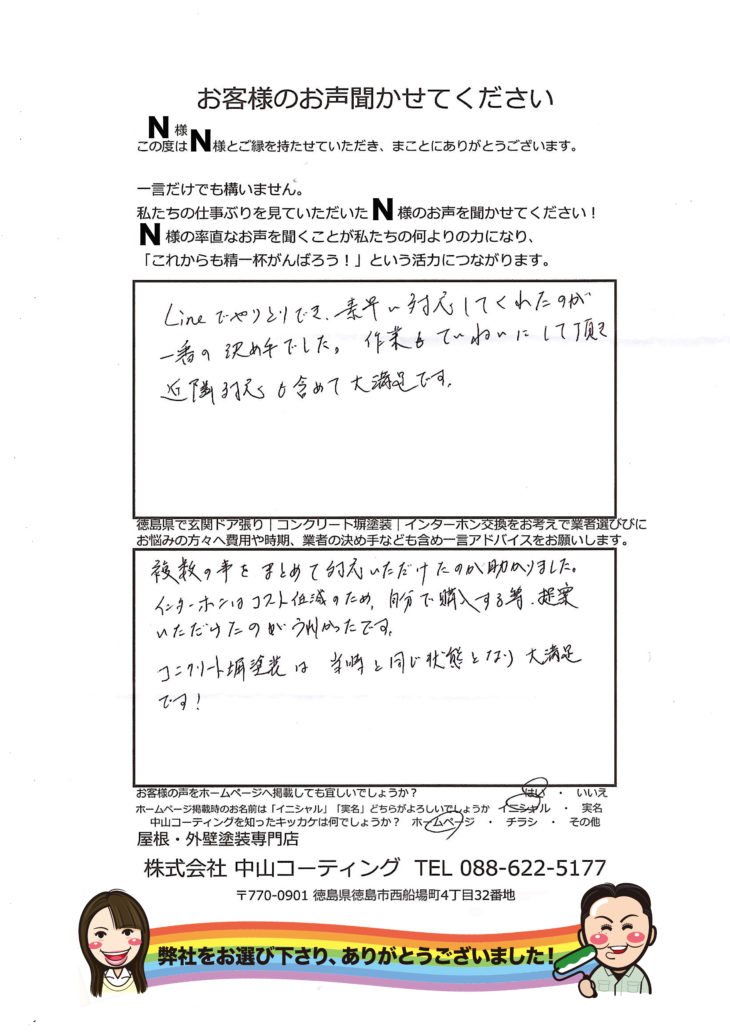 お客様のお声聞かせてください
N様
この度はN様とご縁を持たせていただき、まことにありがとうございます。
一言だけでも構いません。
私たちの仕事ぶりを見ていただいたN様のお声を聞かせてください！
N様の率直なお声を聞くことが私たちの何よりの力になり、
「これからも精一杯がんばろう！」という活力につながります。
Lineでやりとりでき、素早い対応してくれたのが
一番の決め手でした。作業もていねいにして頂き
近隣対応も含めて大満足です。
徳島県で玄関ドア張り｜コンクリート塀塗装｜インターホン交換をお考えで業者選びびに
お悩みの方々へ費用や時期、業者の決め手なども含め一言アドバイスをお願いします。
複数の事をまとめて対応いただけたのが助かりました。
インターホンはコスト低減のため、自分で購入する等、提案
いただけたのが うれかったです。
コンクリート塀塗装は 当時と同じ状態となり 大満足
です！
お客様の声をホームページへ掲載しても宜しいでしょうか？ はい ・ いいえ
ホームページ掲載時のお名前は「イニシャル」「実名」どちらがよろしいでしょうか イニシャル ・ 実名
中山コーティングを知ったキッカケは何でしょうか？ ホームページ ・ チラシ ・ その他
屋根・外壁塗装専門店
株式会社 中山コーティング TEL 088-622-5177
〒770-0901 徳島県徳島市西船場町4丁目32番地
弊社をお選び下さり、ありがとうございました！